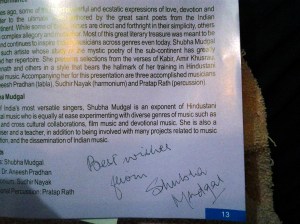 ago, some of the most
erful and ecstatic expressions of love, devotion and
er to the ultimate
ered by the great saint poets from the Indian
While some of
erses are direct and forthright in their simplicity, others
complex allegory and
Most of this great literary treasure was meant to be
continues to inspire
musicians across genres even today. Shubha Mudgal
such artiste whose
mystic poetry of the sub-continent has greatly
her repertoire. She presents selections from the verses of Kabir, Amir Khusrau,
and others in a style that bears the hallmarks of her training in Hindustani
music. Accompanying her for this presentation are three accomplished musicians
Aneesh Pradhan (tabla), Sudhir Nayak (harmonium) and Pratap Rath (percussion).
Mudgal
India's most versatile singers, Shubha Mudgal is an exponent of Hindustani
music who is equally at ease experimenting with diverse genres of music such as
and cross cultural collaborations, film music and devotional music. She is also a
and a teacher, in addition to being involved with many projects related to music
and the dissemination of Indian music.
Shubha Mudgal
Dr Aneesh Pradhan
Sudhir Nayak
Percussion: Pratap Rath
Best wishes
from
Shubha
Mudgal
13